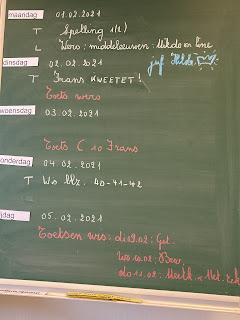 maandag 01.02.2021
T Spelling 1(2)
L Wero: middeleeuwen: Mildo en Line
dinsdag 02.02.2021 juf Hilde
T Frans KWEETET!
Toets wero
woensdag 03.02.2021
Toets C 10 Frans
onderdag 04.02.2021
T Wo blz. 40-41-42
ijdag 05.02.2021
Toetsen wis: di 9.02: Get.
wo 10.02: Bew.
do 11.02: Meetk. Met.